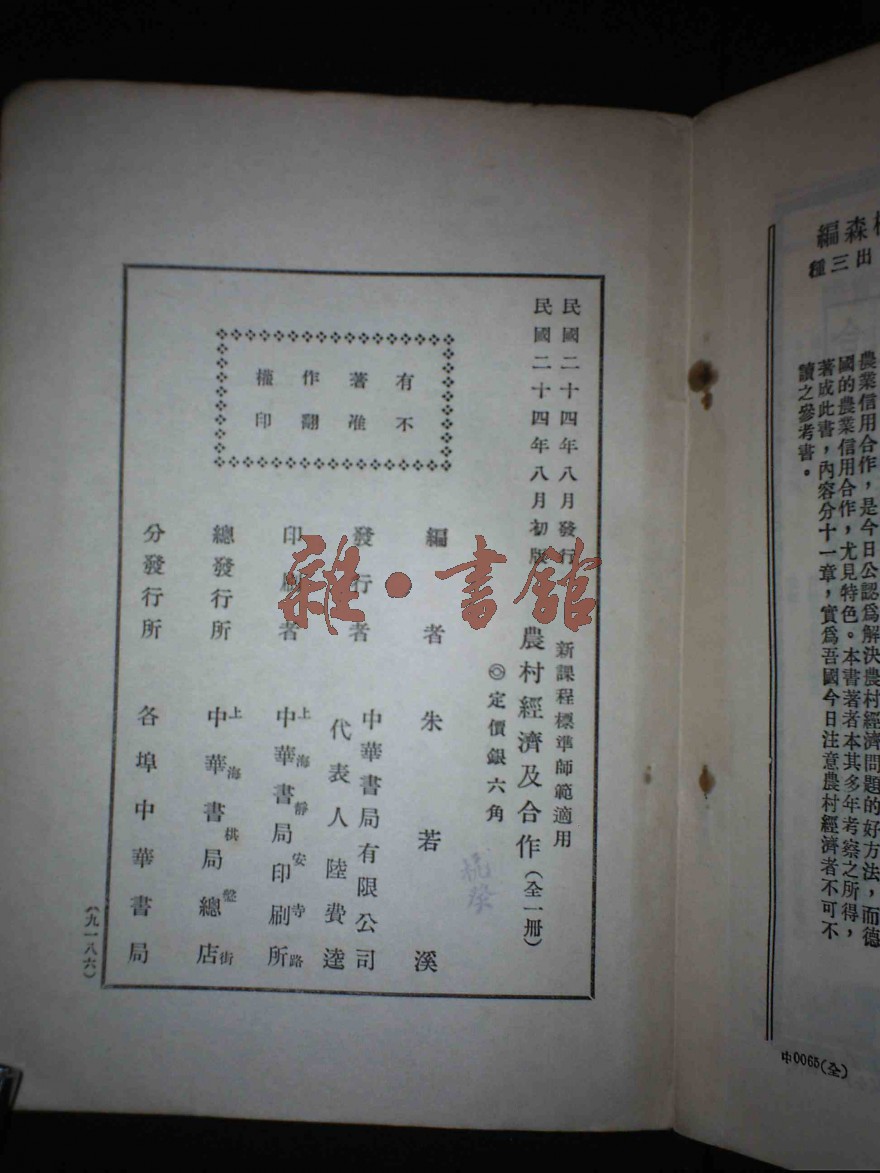 編
種三出
農業信用合作，是今日公認爲解決農村經濟問題的好方法，而德
國的農業信用合作，尤見特色。本書著者本其多年考察之所得，
著成此書，內容分十一章，實爲吾國今日注意農村經濟者不可不
讀之參考書。
中0065(全)
民國二十四年八月發行
民國二十四年八月初版
新課程標準師範適用
農村經濟及合作（全一册）
◎定價銀六角
有著作權
不准翻印
編者 朱若溪
發行者 中華書局有限公司
代表人 陸費逵
印刷者 上海靜安寺路
中華書局印刷所
總發行所 上海棋盤街
中華書局總店
分發行所 各埠中華書局
（九一八六）
雜·書館